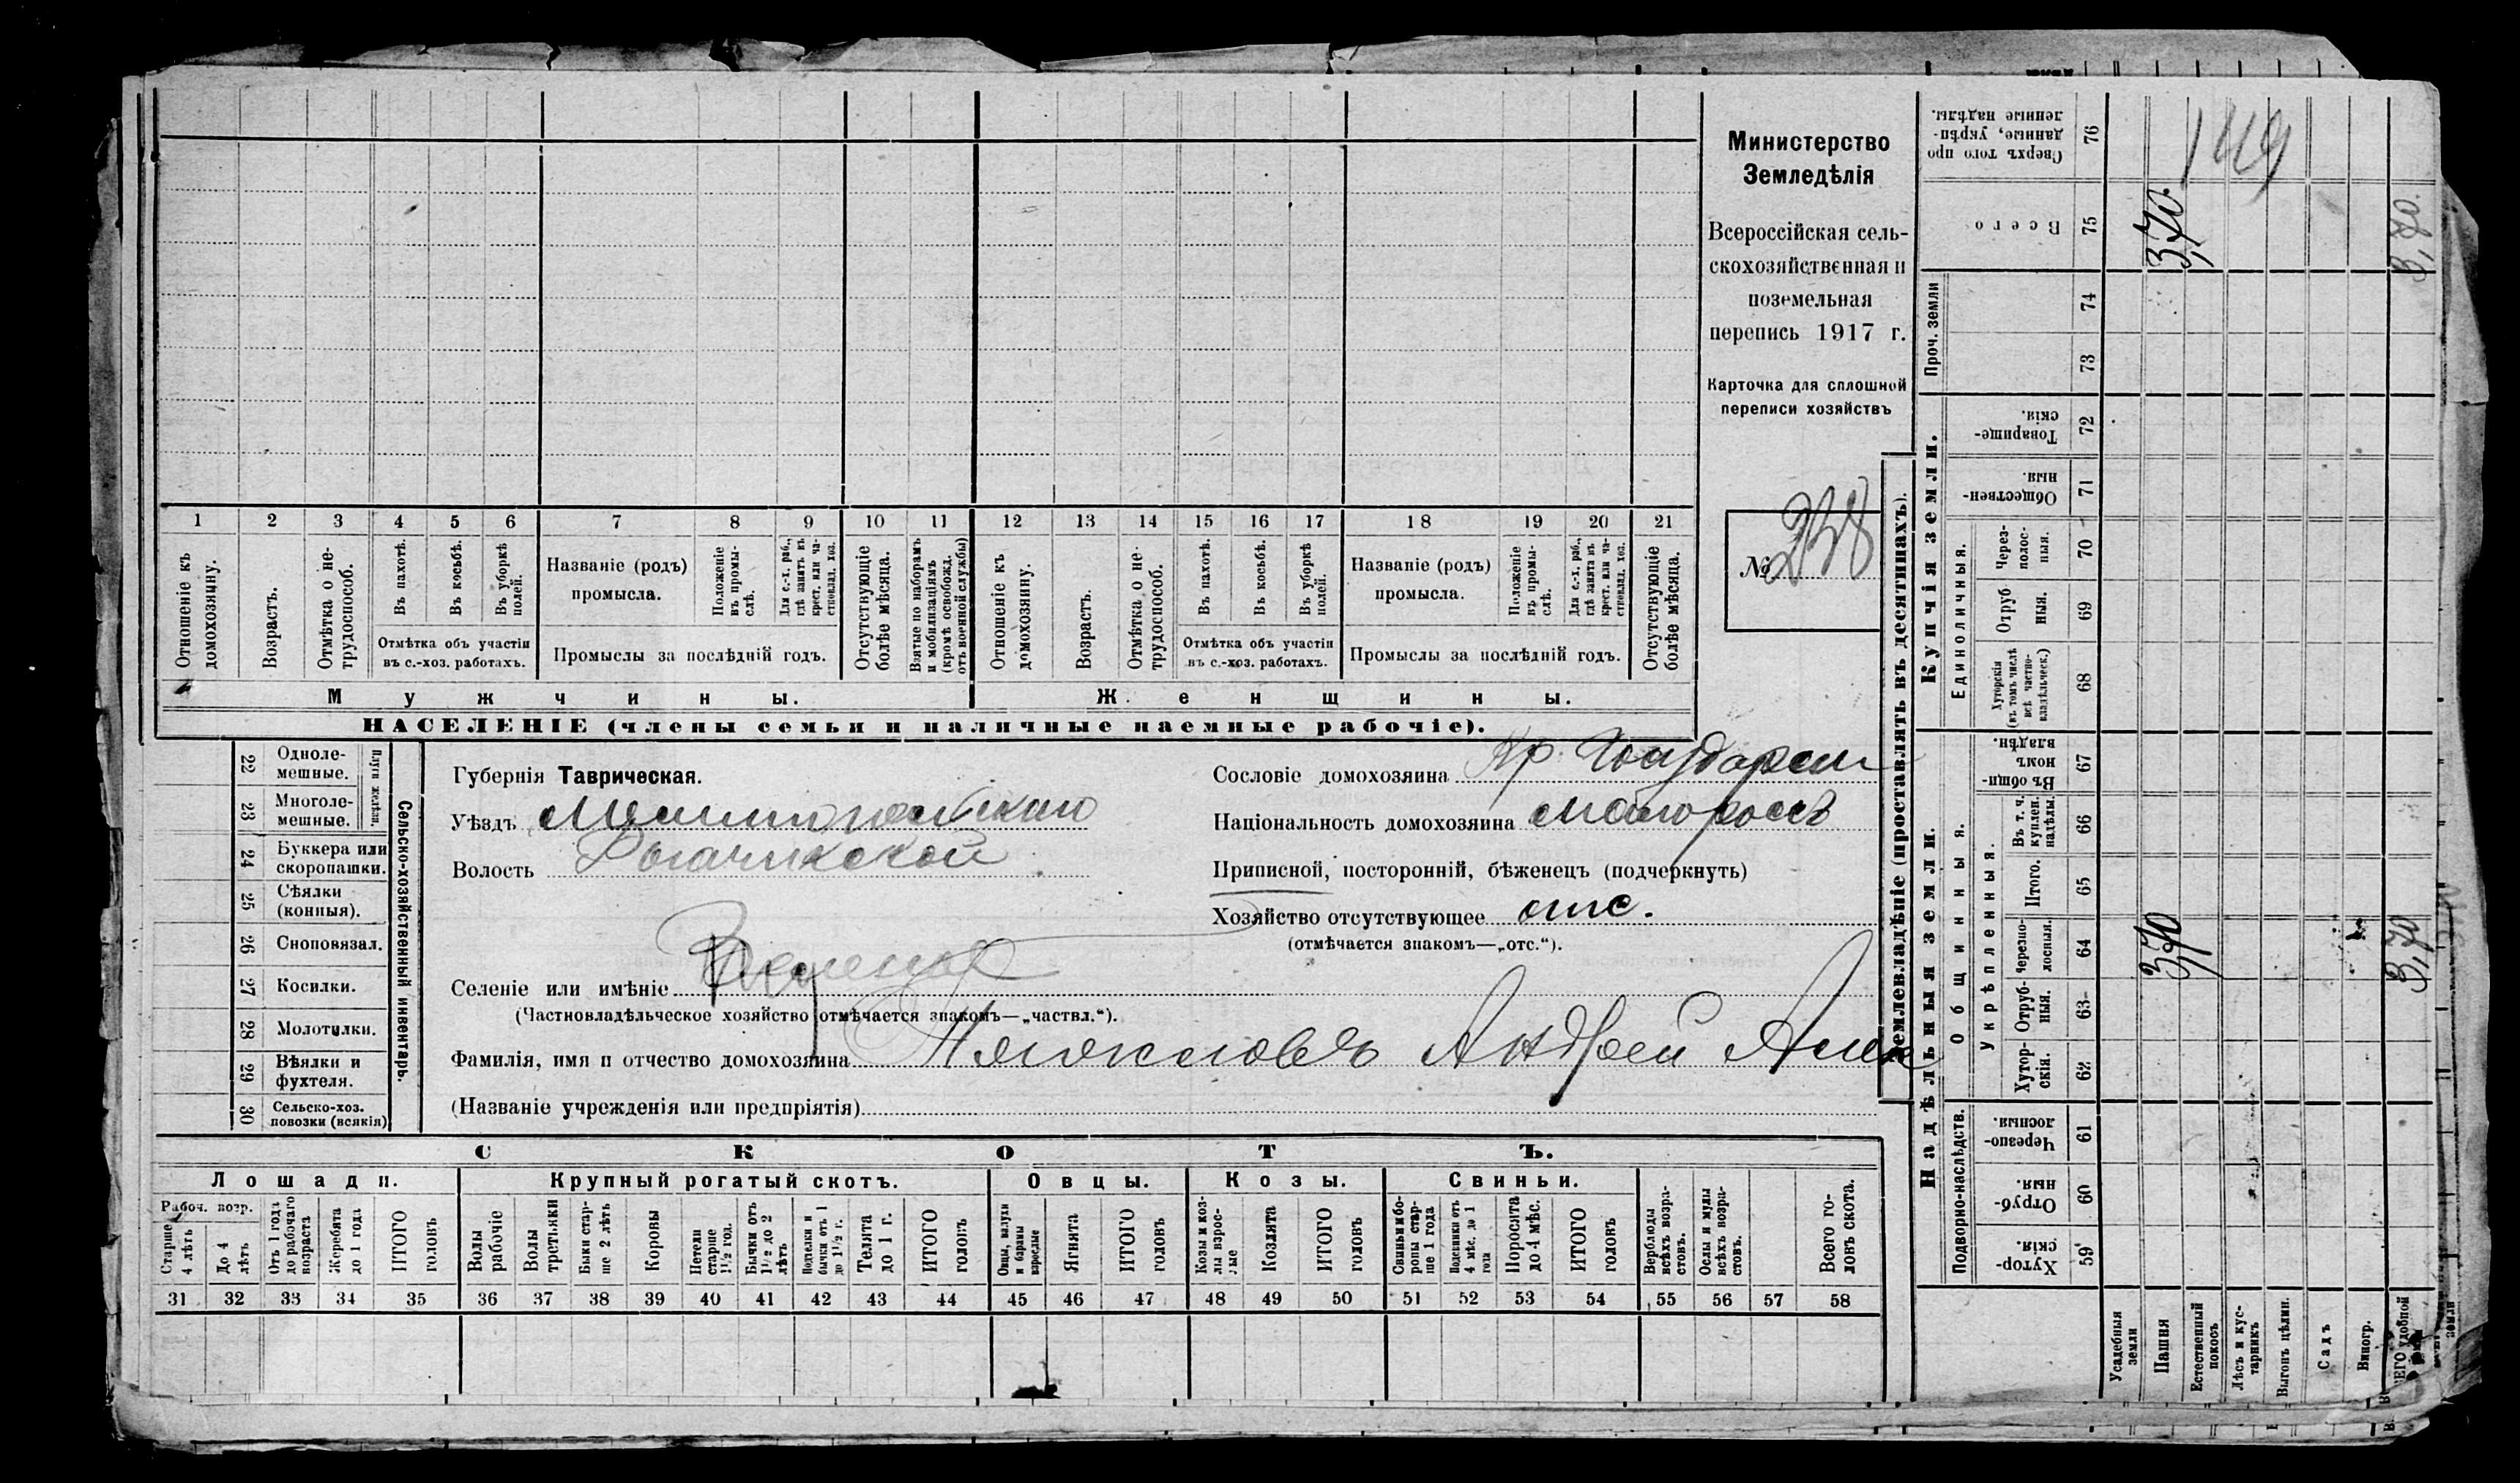 Министерство
Земледѣлія
Всероссійская сель-
скохозяйственная и
поземельная
перепись 1917 г.
Карточка для сплошной
переписи хозяйствъ
№ 238
1 2 3 4 5 6 7 8 9 10 11 12 13 14 15 16 17 18 19 20 21
Отношеніе къ домохозяину.
Возрастъ.
Отмѣтка о не-трудоспособ.
Въ пахотѣ.
Въ косьбѣ.
Въ уборкѣ полей.
Отмѣтка объ участіи
въ с.-хоз. работахъ.
Названіе (родъ)
промысла.
Положеніе въ промы-слѣ.
Для с.-х. раб., гдѣ занятъ въ крест. или ча-стновлад. хоз.
Промыслы за послѣдній годъ.
Отсутствующіе болѣе мѣсяца.
Взятые по наборамъ и мобилизаціямъ (кромѣ освобожд. отъ военной службы)
Отношеніе къ домохозяину.
Возрастъ.
Отмѣтка о не-трудоспособ.
Въ пахотѣ.
Въ косьбѣ.
Въ уборкѣ полей.
Отмѣтка объ участіи
въ с.-хоз. работахъ.
Названіе (родъ)
промысла.
Положеніе въ промы-слѣ.
Для с.-х. раб., гдѣ занята въ крест. или ча-стновлад. хоз.
Промыслы за послѣдній годъ.
Отсутствующіе болѣе мѣсяца.
Мужчины.
Женщины.
НАСЕЛЕНІЕ (члены семьи и наличные наемные рабочіе).
22 Одноле-мешные.
23 Многоле-мешные.
Плуги желѣзн.
24 Буккера или скоропашки.
25 Сѣялки (конныя).
26 Сноповязал.
27 Косилки.
28 Молотилки.
29 Вѣялки и фухтеля.
30 Сельско-хоз. повозки (всякія)
Сельско-хозяйственный инвентарь.
Губернія Таврическая.
Уѣздъ
Волость Рогачикской
Селеніе или имѣніе
(Частновладѣльческое хозяйство отмѣчается знакомъ—„частвл.“).
Фамилія, имя и отчество домохозяина Андрей
(Названіе учрежденія или предпріятія)
Сословіе домохозяина Кр.
Національность домохозяина малороссъ
Приписной, посторонній, бѣженецъ (подчеркнуть)
Хозяйство отсутствующее отс.
(отмѣчается знакомъ—„отс.“).
СКОТЪ.
Лошади.
Крупный рогатый скотъ.
Овцы.
Козы.
Свиньи.
Рабоч. возр.
Старше 4 лѣтъ
До 4 лѣтъ
Отъ 1 года до рабочаго возраста
Жеребята до 1 года
ИТОГО головъ
Волы рабочіе
Волы третьяки
Быки стар-ше 2 лѣтъ
Коровы
Нетели старше 1½ года.
Бычки отъ 1½ до 2 лѣтъ
Подтелки и бычки отъ 1 до 1½ г.
Телята до 1 г.
ИТОГО головъ
Овцы, валухи и бараны взрослые
Ягнята
ИТОГО головъ
Козы и коз-лы взрос-лые
Козлята
ИТОГО головъ
Свиньи и бо-ровы стар-ше 1 года
Подсвинки отъ 4 мѣс. до 1 года
Поросята до 4 мѣс.
ИТОГО головъ
Верблюды всѣхъ возра-стовъ.
Ослы и мулы всѣхъ возра-стовъ.
Всего го-ловъ скота.
31 32 33 34 35 36 37 38 39 40 41 42 43 44 45 46 47 48 49 50 51 52 53 54 55 56 57 58
Землевладѣніе (проставлять въ десятинахъ).
Надѣльныя земли.
Купчія земли.
Проч. земли
Подворно-наслѣдств.
Общинныя.
Укрѣпленныя.
Единоличныя.
Сверхъ того про-данные, укрѣп-ленные надѣлы. 76
Всего 75 3,70.
149
3,70.
74
73
Товарище-скія. 72
Обществен-ныя 71
Через-полос-ныя. 70
Отруб-ныя. 69
Хуторскія (въ томъ числѣ всѣ частно-владѣльческ.) 68
Въ общи-номъ владѣн. 67
Въ т. ч. куплен. надѣлы. 66
Итого. 65
Черезпо-лосныя. 64 3,70 3,70
Отруб-ныя. 63
Хутор-скія. 62
Черезпо-лосныя 61
Отруб-ныя. 60
Хутор-скія. 59
Усадебныя земли
Пашня
Естественный покосъ
Лѣсъ и кус-тарникъ
Выгонъ цѣлин.
Садъ
Виногр.